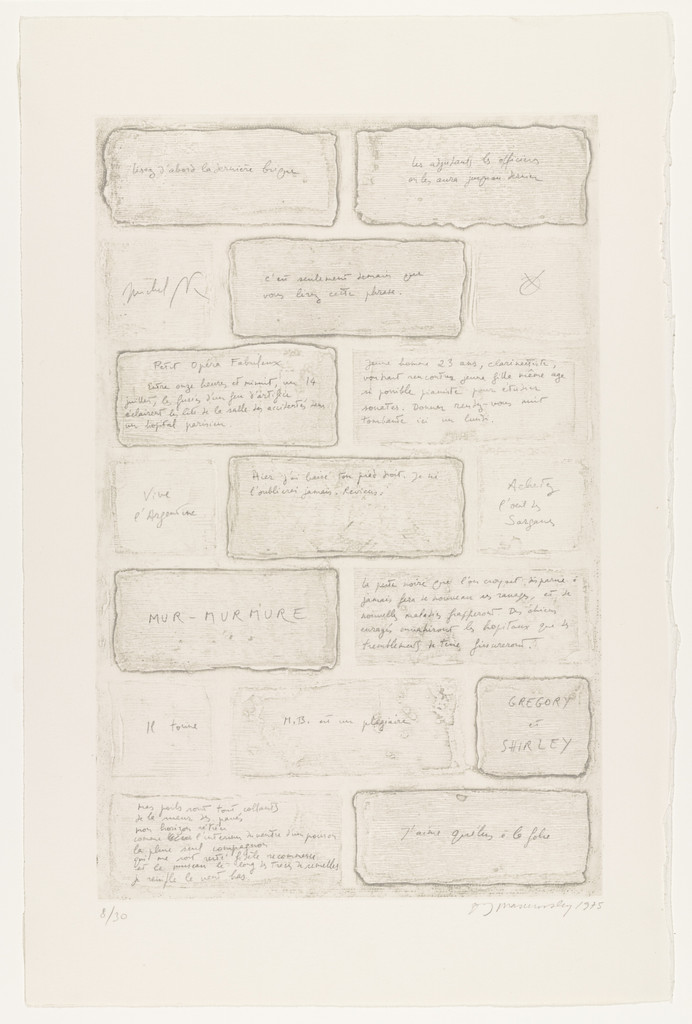 Lisez d'abord la dernière brique
les adjudants les officiers
on les aura jusqu'au dernier
Michel
c'est seulement demain que
vous lirez cette phrase.
Petit Opéra Fabuleux
Entre onze heures et minuit, un 14
juillet, les fusées d'un feu d'artifice
éclairent les lits de la salle des accidentés dans
un hôpital parisien
jeune homme 23 ans, clarinettiste,
voudrait rencontrer jeune fille même age
si possible pianiste pour étudier
sonates. Donner rendez-vous nuit
tombante ici un lundi.
Vive
l'Argentine
Hier j'ai baisé ton pied droit. Je ne
l'oublierai jamais. Reviens.
Achetez
l'oeil de
MUR-MURMURE
la peste noire que l'on croyait disparue à
jamais fera de nouveau ses ravages, et de
nouvelles maladies frapperont. Des chiens
enragés envahiront les hopitaux que des
tremblements de terre
Il tonne
M.B. est un plagiaire
GREGORY
et
SHIRLEY
mes poils sont tout collants
de la sueur des pavés
mon horizon rétréci
comme l'intérieur du ventre d'un poisson
la pluie seul compagnon
le museau le long des traces de semelles
je renifle le vent bas
J'aime quelqu'un à la folie
8/30
1975